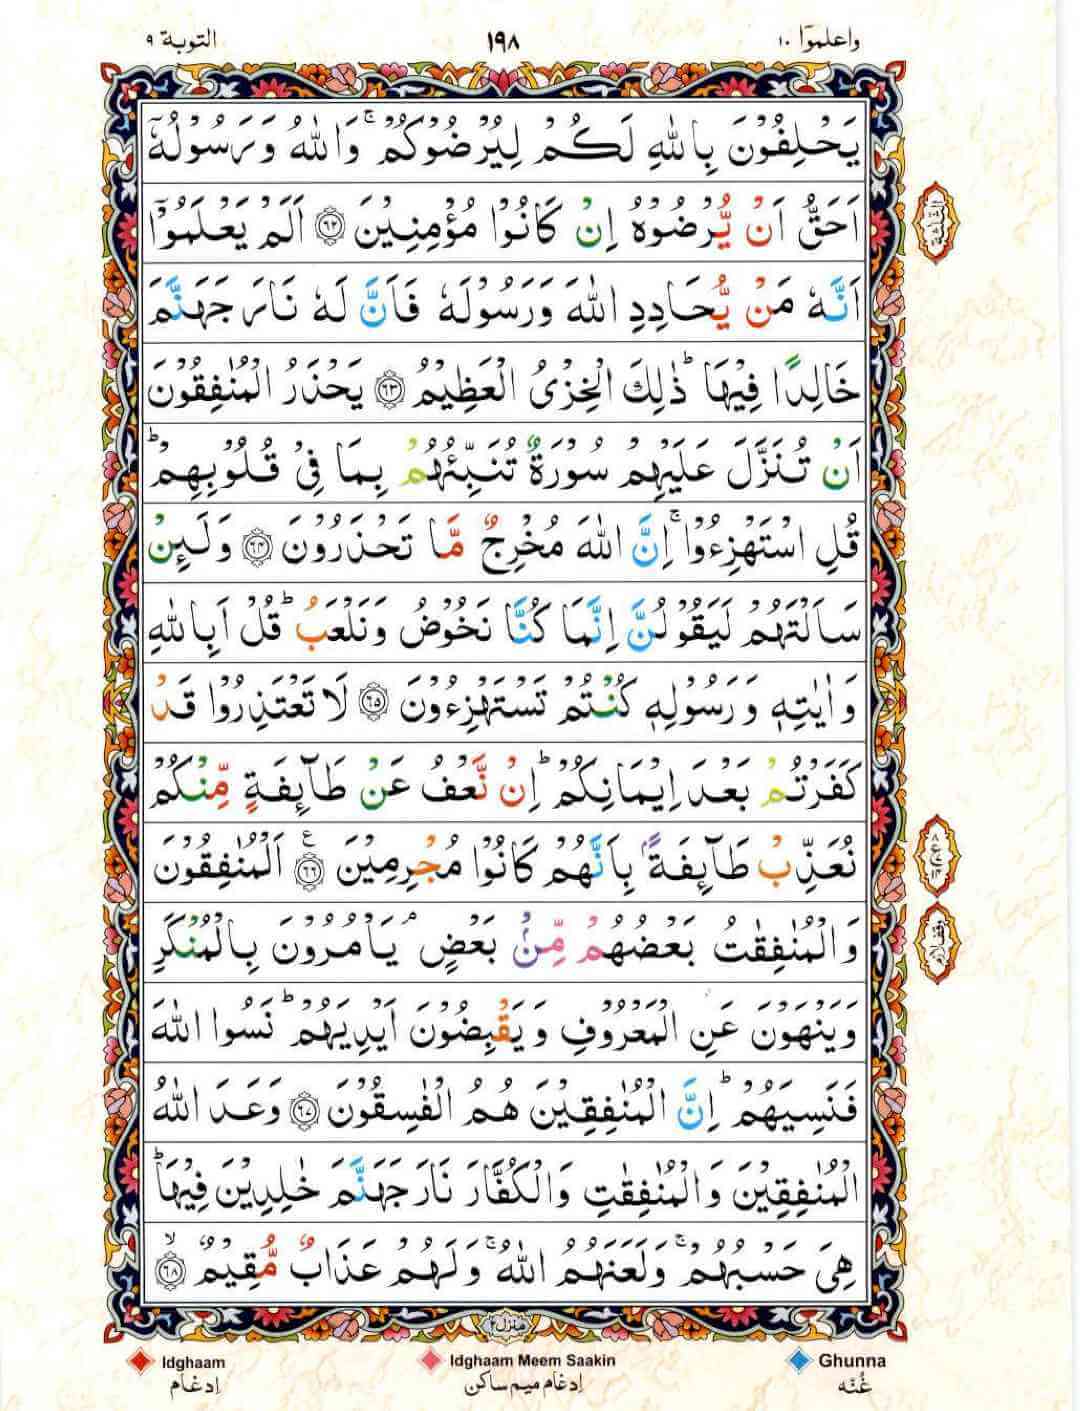 واعلموۤا ١٠
١٩٨
التوبة ٩
يَحْلِفُوْنَ بِاللّٰهِ لَكُمْ لِيُرْضُوْكُمْ ۚ وَاللّٰهُ وَرَسُوْلُهٗۤ
اَحَقُّ اَنْ يُّرْضُوْهُ اِنْ كَانُوْا مُؤْمِنِيْنَ ﴿٦٢﴾ اَلَمْ يَعْلَمُوْۤا
اَنَّهٗ مَنْ يُّحَادِدِ اللّٰهَ وَرَسُوْلَهٗ فَاَنَّ لَهٗ نَارَ جَهَنَّمَ
خَالِدًا فِيْهَا ؕ ذٰلِكَ الْخِزْىُ الْعَظِيْمُ ﴿٦٣﴾ يَحْذَرُ الْمُنٰفِقُوْنَ
اَنْ تُنَزَّلَ عَلَيْهِمْ سُوْرَةٌ تُنَبِّئُهُمْ بِمَا فِىْ قُلُوْبِهِمْ ؕ
قُلِ اسْتَهْزِءُوْا ۚ اِنَّ اللّٰهَ مُخْرِجٌ مَّا تَحْذَرُوْنَ ﴿٦٤﴾ وَلَئِنْ
سَاَلْتَهُمْ لَيَقُوْلُنَّ اِنَّمَا كُنَّا نَخُوْضُ وَنَلْعَبُ ؕ قُلْ اَبِاللّٰهِ
وَاٰيٰتِهٖ وَرَسُوْلِهٖ كُنْتُمْ تَسْتَهْزِءُوْنَ ﴿٦٥﴾ لَا تَعْتَذِرُوْا قَدْ
كَفَرْتُمْ بَعْدَ اِيْمَانِكُمْ ؕ اِنْ نَّعْفُ عَنْ طَآئِفَةٍ مِّنْكُمْ
نُعَذِّبْ طَآئِفَةًۢ بِاَنَّهُمْ كَانُوْا مُجْرِمِيْنَ ﴿٦٦﴾ ع اَلْمُنٰفِقُوْنَ
وَالْمُنٰفِقٰتُ بَعْضُهُمْ مِّنْۢ بَعْضٍ ۘ يَاْمُرُوْنَ بِالْمُنْكَرِ
وَيَنْهَوْنَ عَنِ الْمَعْرُوْفِ وَيَقْبِضُوْنَ اَيْدِيَهُمْ ؕ نَسُوا اللّٰهَ
فَنَسِيَهُمْ ؕ اِنَّ الْمُنٰفِقِيْنَ هُمُ الْفٰسِقُوْنَ ﴿٦٧﴾ وَعَدَ اللّٰهُ
الْمُنٰفِقِيْنَ وَالْمُنٰفِقٰتِ وَالْكُفَّارَ نَارَ جَهَنَّمَ خٰلِدِيْنَ فِيْهَا ؕ
هِىَ حَسْبُهُمْ ۚ وَلَعَنَهُمُ اللّٰهُ ۚ وَلَهُمْ عَذَابٌ مُّقِيْمٌ ﴿٦٨﴾ ۙ
منزل ٢
Idghaam
Idghaam Meem Saakin
Ghunna
إدغام
إدغام ميم ساكن
غُنّه